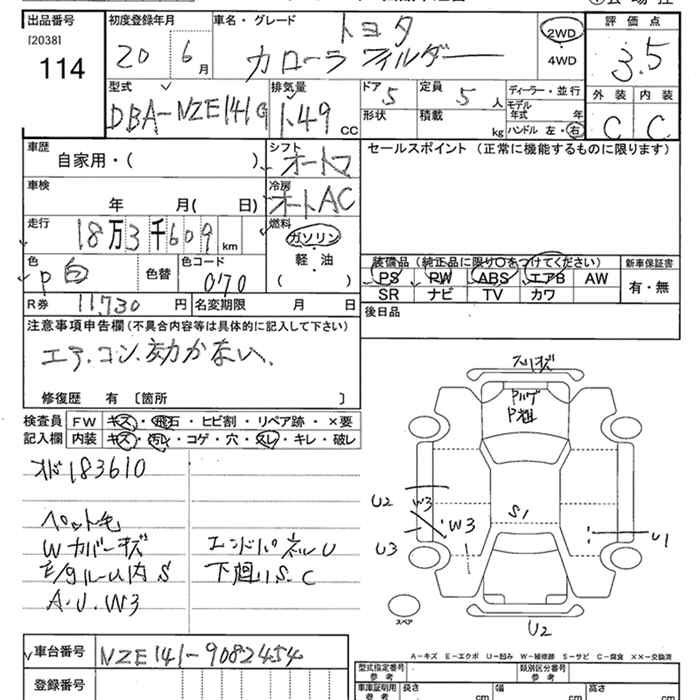 出品番号
[2038]
114
初度登録年月
20 6月
車名・グレード
トヨタ
カローラ フィルダー
2WD
・
4WD
評価点
3.5
型式
DBA-NZE141G
排気量
1.49 CC
ドア
5
定員
5 人
形状
積載
kg
ディーラー・並行
モデル
年式 年
ハンドル 左・右
外装 内装
C C
車歴
自家用・( )
シフト
オートマ
セールスポイント(正常に機能するものに限ります)
車検
年 月( 日)
冷房
オートAC
走行
18万3千609 km
燃料
ガソリン
・
軽・油
( )
色
P白
色替
色コード
070
装備品(純正品に限り○をつけてください)
PS PW ABS エアB AW
SR ナビ TV カワ
新車保証書
有・無
R券 11,730 円
名変期限 月 日
後日品
注意事項申告欄(不具合内容等は具体的に記入して下さい)
エアコン効かない、
修復歴 有 〔箇所 〕
検査員
記入欄
FW キズ・飛石・ヒビ割・リペア跡・×要
内装 キズ・汚レ・コゲ・穴・スレ・キレ・破レ
オド183610
ペット毛
Wカバーキズ
A.U.W3
エンドパネルU
下廻りS.C
スリキズ
Pハゲ
P粗
U2
W3
W3
U3
S1
U1
U2
スペア
A-キズ E-エクボ U-凹み W-補修跡 S-サビ C-腐食 ××-交換済
車台番号 NZE141-9082454
登録番号
型式指定番号
参考
類別区分番号
参考
車庫証明用
参考
長さ cm
幅 cm
高さ cm